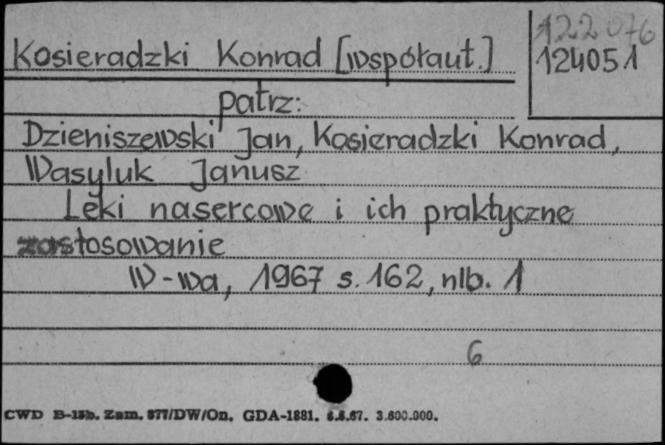 122076
Kosieradzki Konrad [współaut.] 124051
patrz:
Dzieniszewski Jan, Kosieradzki Konrad,
Wasyluk Janusz
Leki nasercowe i ich praktyczne
zastosowanie
W-wa, 1967 s. 162, nlb. 1
6
CWD B-15b. Zam. 877/DW/On. GDA-1881. 6.5.67. 3.600.000.